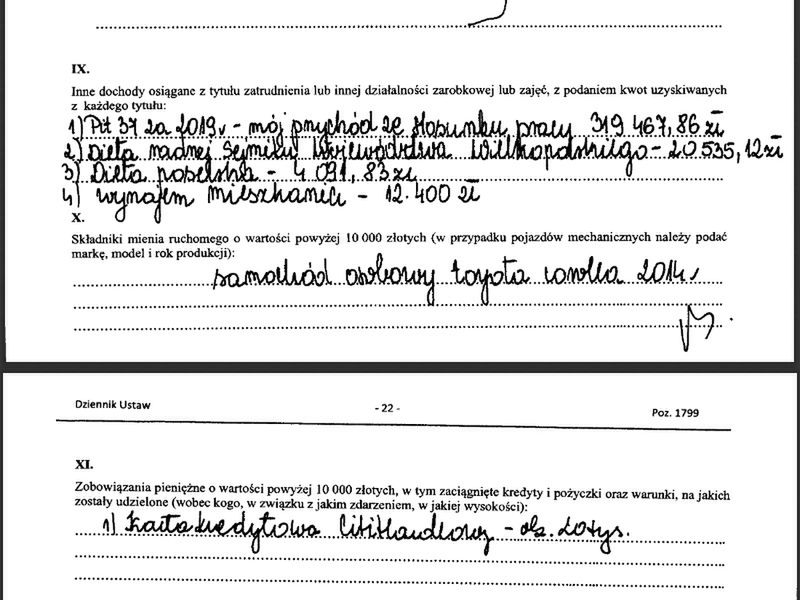 IX.
Inne dochody osiągane z tytułu zatrudnienia lub innej działalności zarobkowej lub zajęć, z podaniem kwot uzyskiwanych
z każdego tytułu:
1) Pit 37 za 2019r - mój przychód ze stosunku pracy 319 467,86 zł
2) Dieta radnej Sejmiku Województwa Wielkopolskiego - 20 535,12 zł
3) Dieta poselska - 4 091,83 zł
4) wynajem mieszkania - 12.400 zł
X.
Składniki mienia ruchomego o wartości powyżej 10 000 złotych (w przypadku pojazdów mechanicznych należy podać
markę, model i rok produkcji):
samochód osobowy toyota corolla 2014r
Dziennik Ustaw
- 22 -
Poz. 1799
XI.
Zobowiązania pieniężne o wartości powyżej 10 000 złotych, w tym zaciągnięte kredyty i pożyczki oraz warunki, na jakich
zostały udzielone (wobec kogo, w związku z jakim zdarzeniem, w jakiej wysokości):
1) Karta kredytowa CitiHandlowy - ok.